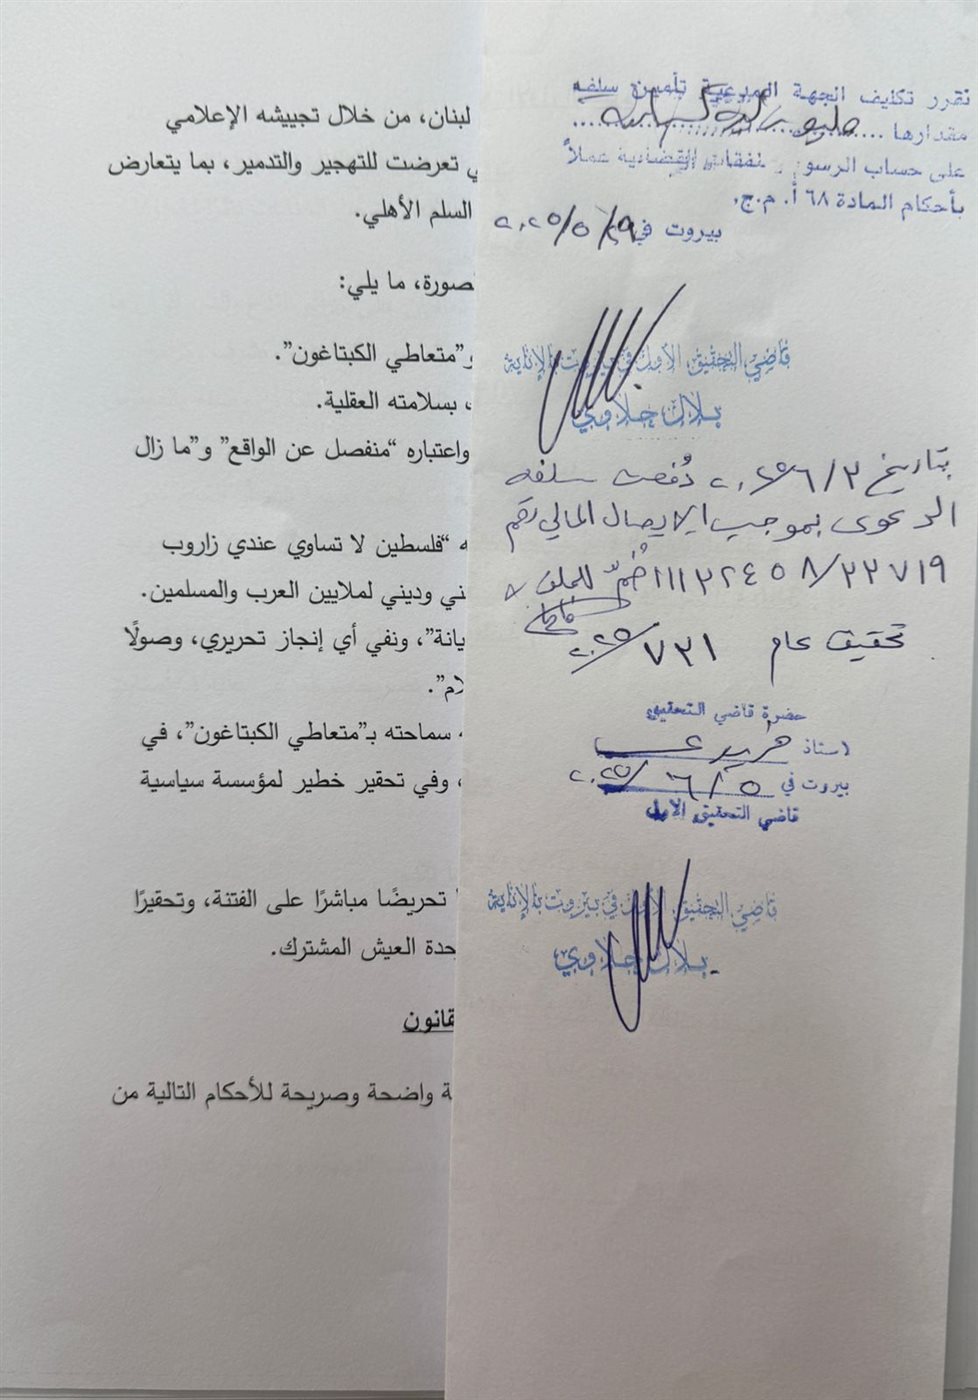 نقرر تكليف الجهة المدعية تأمين سلفه
مقدارها ..........
على حساب الرسوم و نفقات القضائية عملاً
بأحكام المادة ٦٨ أ. م.ج.
بيروت في ٢٩/٥/٢٠٢٥
قاضي التحقيق الأول في بيروت بالإنابة
بلال حلاوي
بتاريخ ٢٠٢٥/٦/٣ دُفعت سلفه
الدعوى بموجب الايصال المالي رقم
١١١٣٢٤٥٨/٢٢٧١٩ ضُمّ للملف
تحقيق عام ٧٣١/٢٠٢٥
حضرة قاضي التحقيق
الاستاذ فريد
بيروت في ٥/٦/٢٠٢٥
قاضي التحقيق الاول
قاضي التحقيق الأول في بيروت بالإنابة
بلال حلاوي
لبنان، من خلال تجييشه الإعلامي
ي تعرضت للتهجير والتدمير، بما يتعارض
السلم الأهلي.
صورة، ما يلي:
و"متعاطي الكبتاغون".
، بسلامته العقلية.
واعتباره "منفصل عن الواقع" و"ما زال
ه "فلسطين لا تساوي عندي زاروب
ني وديني لملايين العرب والمسلمين.
يانة"، ونفي أي إنجاز تحريري، وصولًا
لام".
ه سماحته بـ"متعاطي الكبتاغون"، في
، وفي تحقير خطير لمؤسسة سياسية
ا تحريضًا مباشرًا على الفتنة، وتحقيرًا
حدة العيش المشترك.
قانون
ة واضحة وصريحة للأحكام التالية من